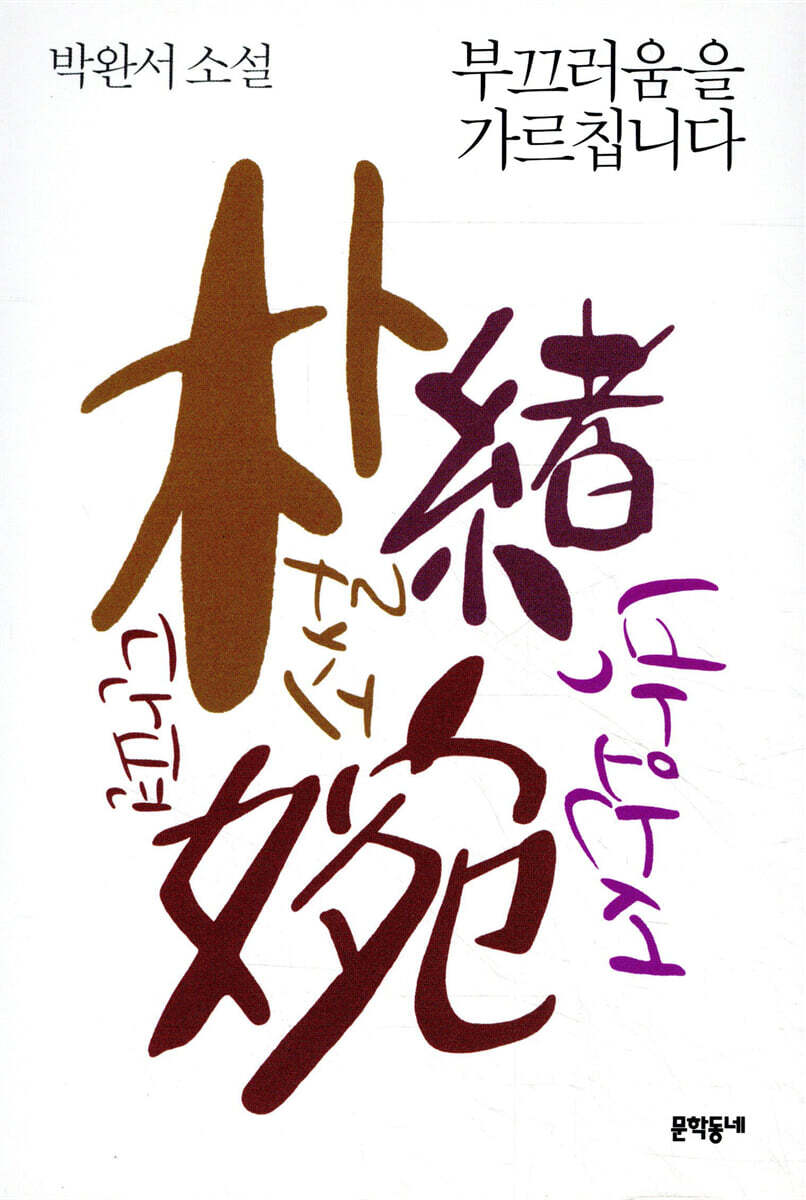 박완서 소설
부끄러움을
가르칩니다
朴
緖
婉
박완서
단편
문학동네